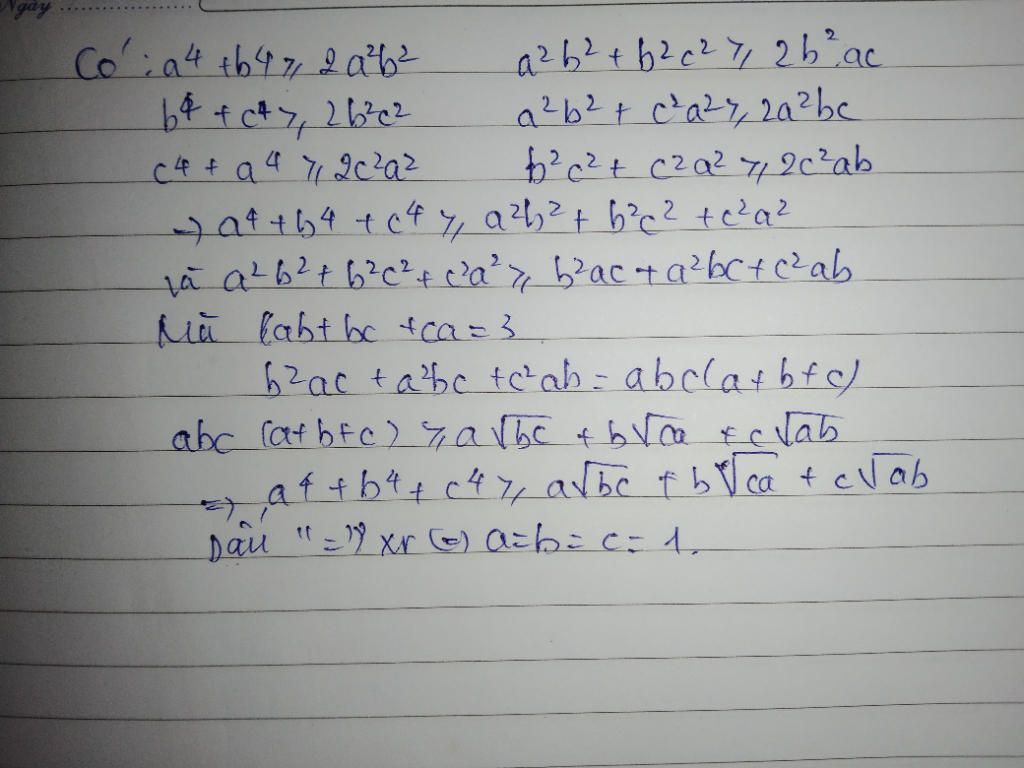 Ngày
Có: a⁴ + b⁴ ⩾ 2a²b² a²b² + b²c² ⩾ 2b².ac
b⁴ + c⁴ ⩾ 2b²c² a²b² + c²a² ⩾ 2a²bc
c⁴ + a⁴ ⩾ 2c²a² b²c² + c²a² ⩾ 2c²ab
→ a⁴ + b⁴ + c⁴ ⩾ a²b² + b²c² + c²a²
và a²b² + b²c² + c²a² ⩾ b²ac + a²bc + c²ab
Mà (ab + bc + ca = 3
b²ac + a²bc + c²ab = abc(a + b + c)
abc (a + b + c) ⩾ a√bc + b√ca + c√ab
=> a⁴ + b⁴ + c⁴ ⩾ a√bc + b√ca + c√ab
Dấu "=" xr (=) a = b = c = 1.